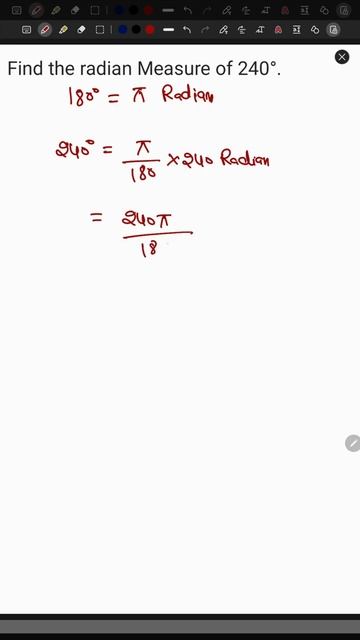 Find the radian Measure of 240°.
180° = π Radian
240° = π/180 × 240 Radian
= 240π/18